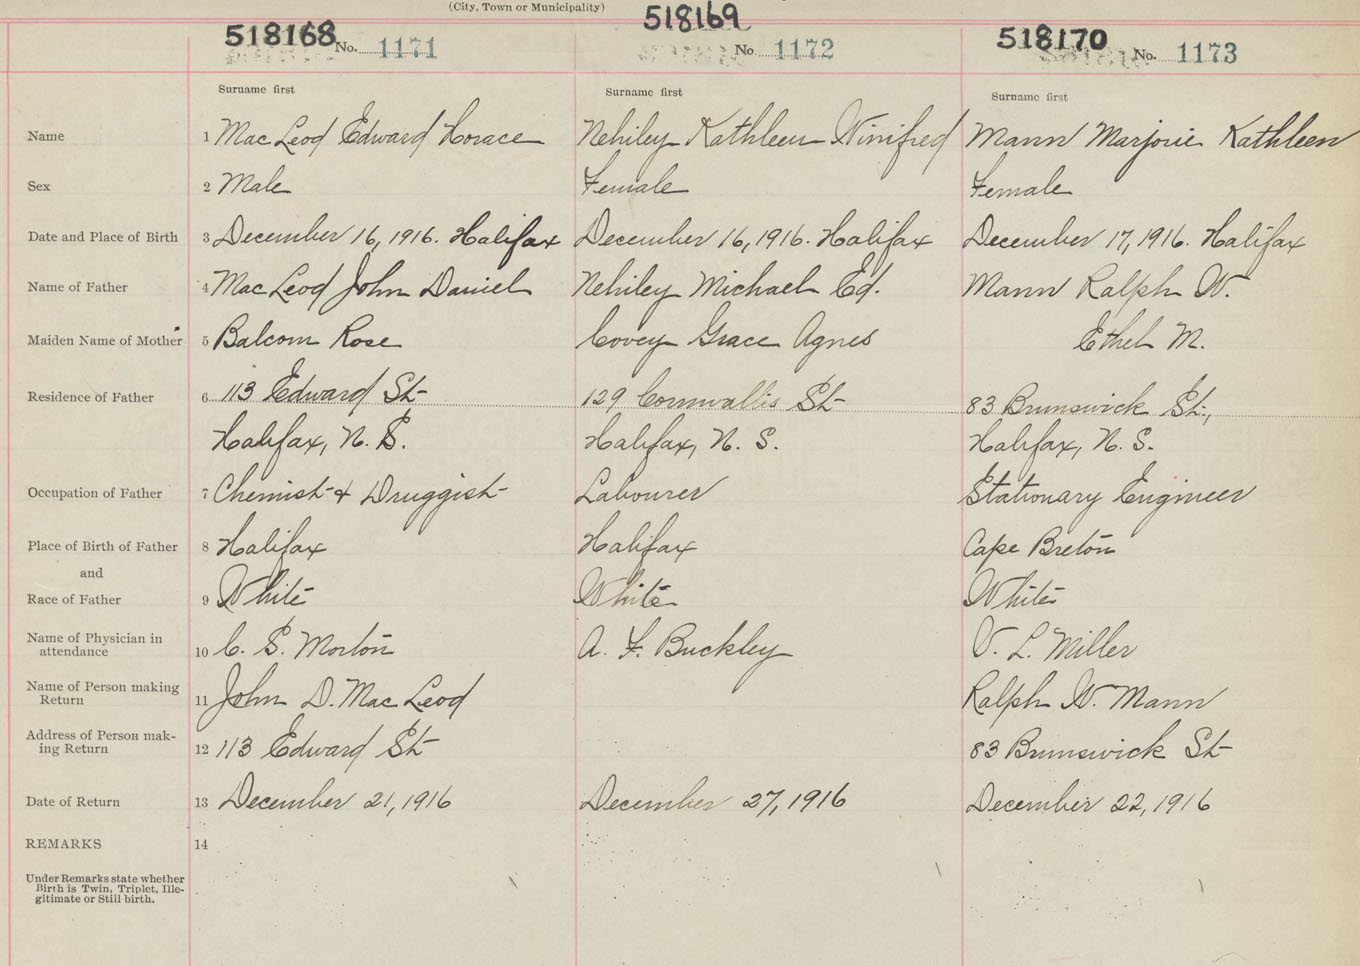 (City, Town or Municipality)
518168 No. 1171 518169 No 1172 518170 No. 1173
Surname first Surname first Surname first
Name 1 MacLeod Edward Horace Nehiley Kathleen Winifred Mann Marjorie Kathleen
Sex 2 Male Female Female
Date and Place of Birth 3 December 16, 1916. Halifax December 16, 1916. Halifax December 17, 1916. Halifax
Name of Father 4 MacLeod John Daniel Nehiley Michael Ed. Mann Ralph W.
Maiden Name of Mother 5 Balcom Rose Covey Grace Agnes Ethel M.
Residence of Father 6 113 Edward St 129 Cornwallis St 83 Brunswick St.,
Halifax, N. S. Halifax, N. S. Halifax, N. S.
Occupation of Father 7 Chemist & Druggist Labourer Stationary Engineer
Place of Birth of Father 8 Halifax Halifax Cape Breton
and
Race of Father 9 White White White
Name of Physician in
attendance 10 C. S. Morton A. F. Buckley V. L. Miller
Name of Person making
Return 11 John D. MacLeod Ralph W. Mann
Address of Person mak-
ing Return 12 113 Edward St 83 Brunswick St
Date of Return 13 December 21, 1916 December 27, 1916 December 22, 1916
REMARKS 14
Under Remarks state whether
Birth is Twin, Triplet, Ille-
gitimate or Still birth.